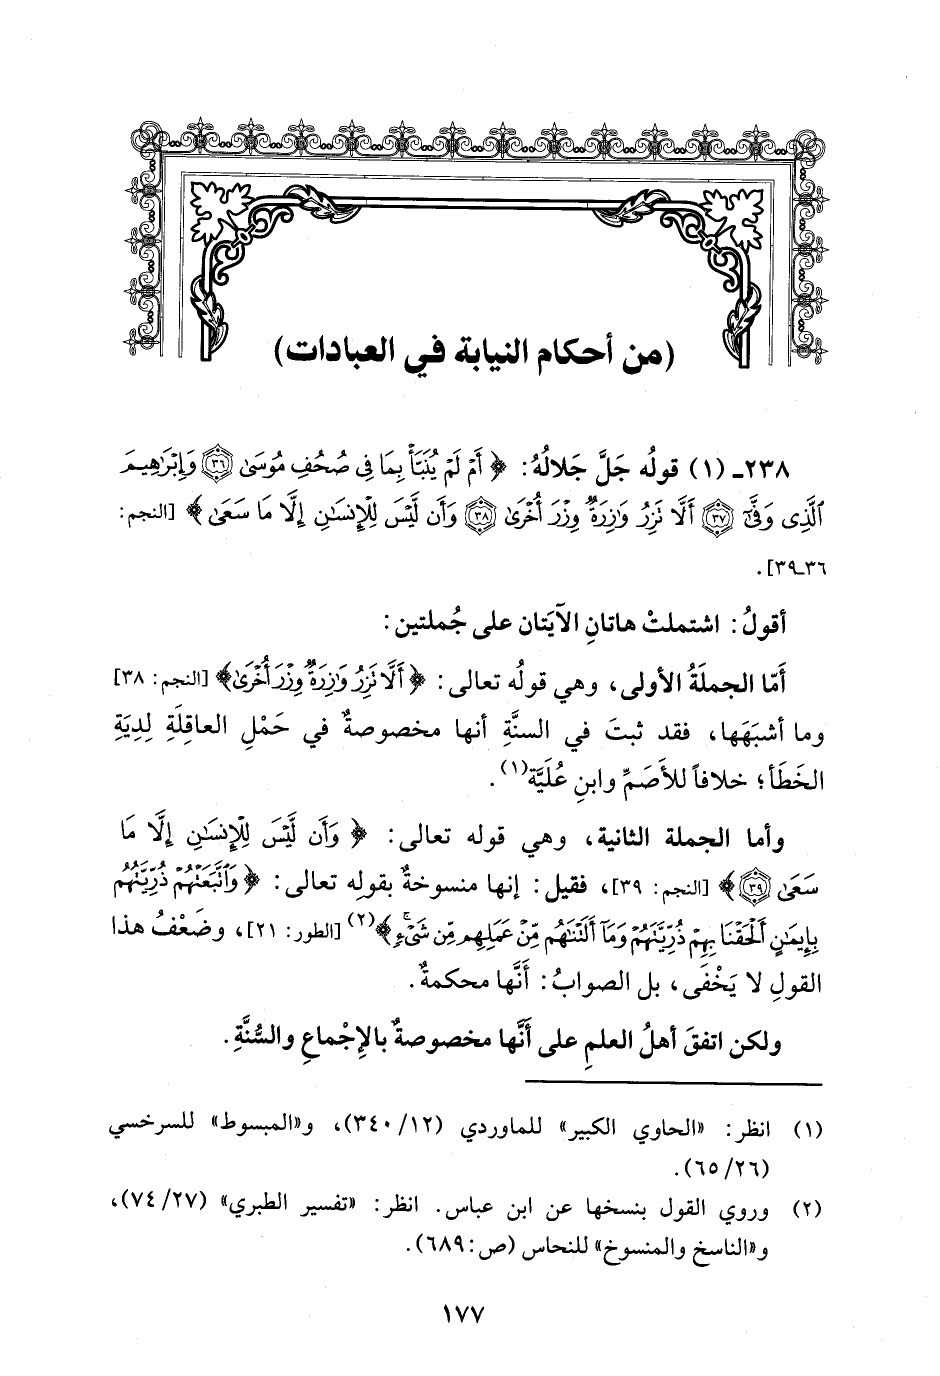 (من أحكام النيابة في العبادات)
٢٣٨ـ (١) قولُه جَلَّ جَلالُهُ: ﴿ أَمْ لَمْ يُنَبَّأْ بِمَا فِى صُحُفِ مُوسَىٰ ٣٦ وَإِبْرَٰهِيمَ
ٱلَّذِى وَفَّىٰٓ ٣٧ أَلَّا تَزِرُ وَازِرَةٌ وِزْرَ أُخْرَىٰ ٣٨ وَأَن لَّيْسَ لِلْإِنسَـٰنِ إِلَّا مَا سَعَىٰ ﴾ [النجم:
٣٦ـ٣٩].
أقولُ: اشتملتْ هاتانِ الآيَتان على جُملتين:
أَمّا الجملَةُ الأولى، وهي قولُه تعالى: ﴿ أَلَّا تَزِرُ وَازِرَةٌ وِزْرَ أُخْرَىٰ﴾ [النجم: ٣٨]
وما أشبَهَها، فقد ثبتَ في السنَّةِ أنها مخصوصةٌ في حَمْلِ العاقِلَةِ لِدِيَةِ
الخَطَأ؛ خلافاً للأَصَمِّ وابنِ عُلَيَّة(١).
وأما الجملة الثانية، وهي قوله تعالى: ﴿ وَأَن لَّيْسَ لِلْإِنسَـٰنِ إِلَّا مَا
سَعَىٰ ٣٩﴾ [النجم: ٣٩]، فقيل: إنها منسوخةٌ بقولِه تعالى: ﴿ وَٱتَّبَعَتْهُمْ ذُرِّيَّتُهُم
بِإِيمَـٰنٍ أَلْحَقْنَا بِهِمْ ذُرِّيَّتَهُمْ وَمَآ أَلَتْنَـٰهُم مِّنْ عَمَلِهِم مِّن شَىْءٍۚ ﴾(٢) [الطور: ٢١]، وضَعْفُ هذا
القولِ لا يَخْفَى، بل الصوابُ: أَنَّها محكمةٌ.
ولكن اتفقَ أهلُ العلمِ على أَنَّها مخصوصةٌ بالإِجْماعِ والسُّنَّةِ.
(١) انظر: «الحاوي الكبير» للماوردي (١٢/ ٣٤٠)، و«المبسوط» للسرخسي
(٢٦/ ٦٥).
(٢) وروي القول بنسخها عن ابن عباس. انظر: «تفسير الطبري» (٢٧/ ٧٤)،
و«الناسخ والمنسوخ» للنحاس (ص: ٦٨٩).
١٧٧